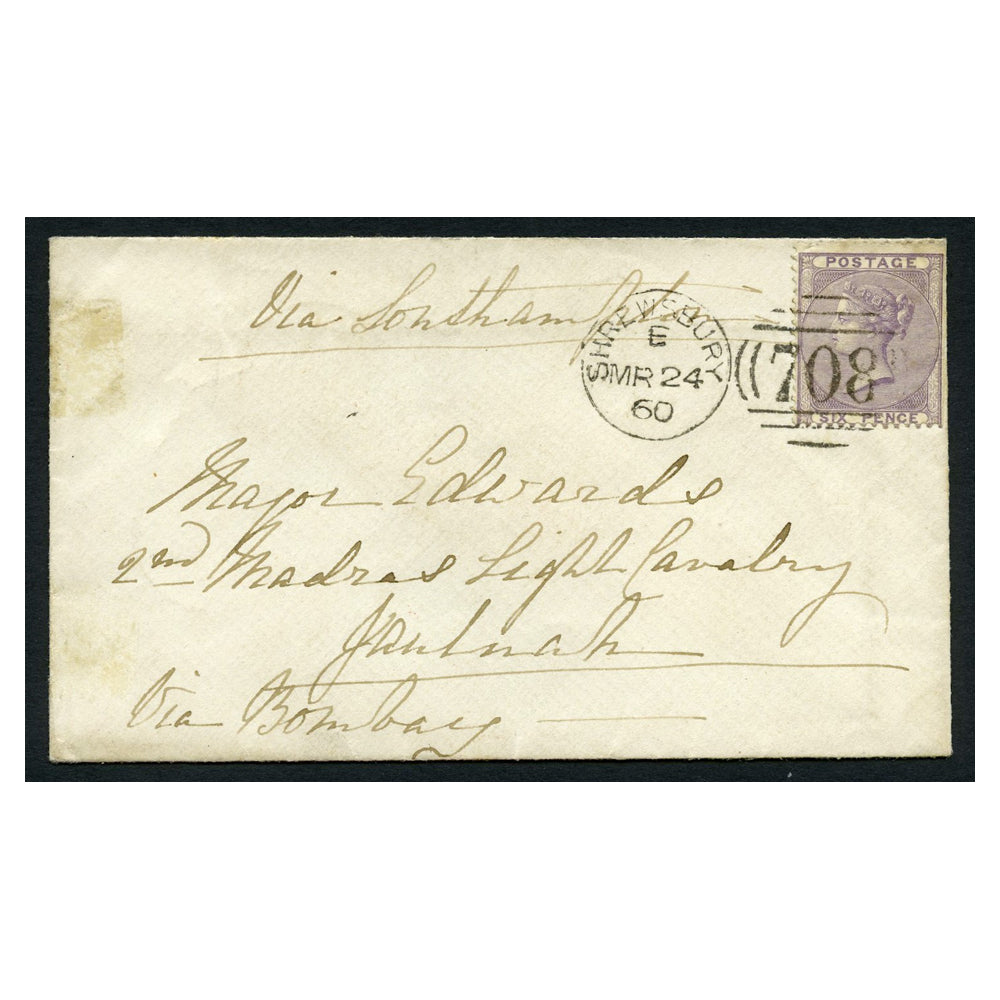 Via Southampton
POSTAGE
SIX PENCE
SHREWSBURY
E
MR 24
60
708
Major Edwards
2nd Madras Light Cavalry
Jaulnah
Via Bombay